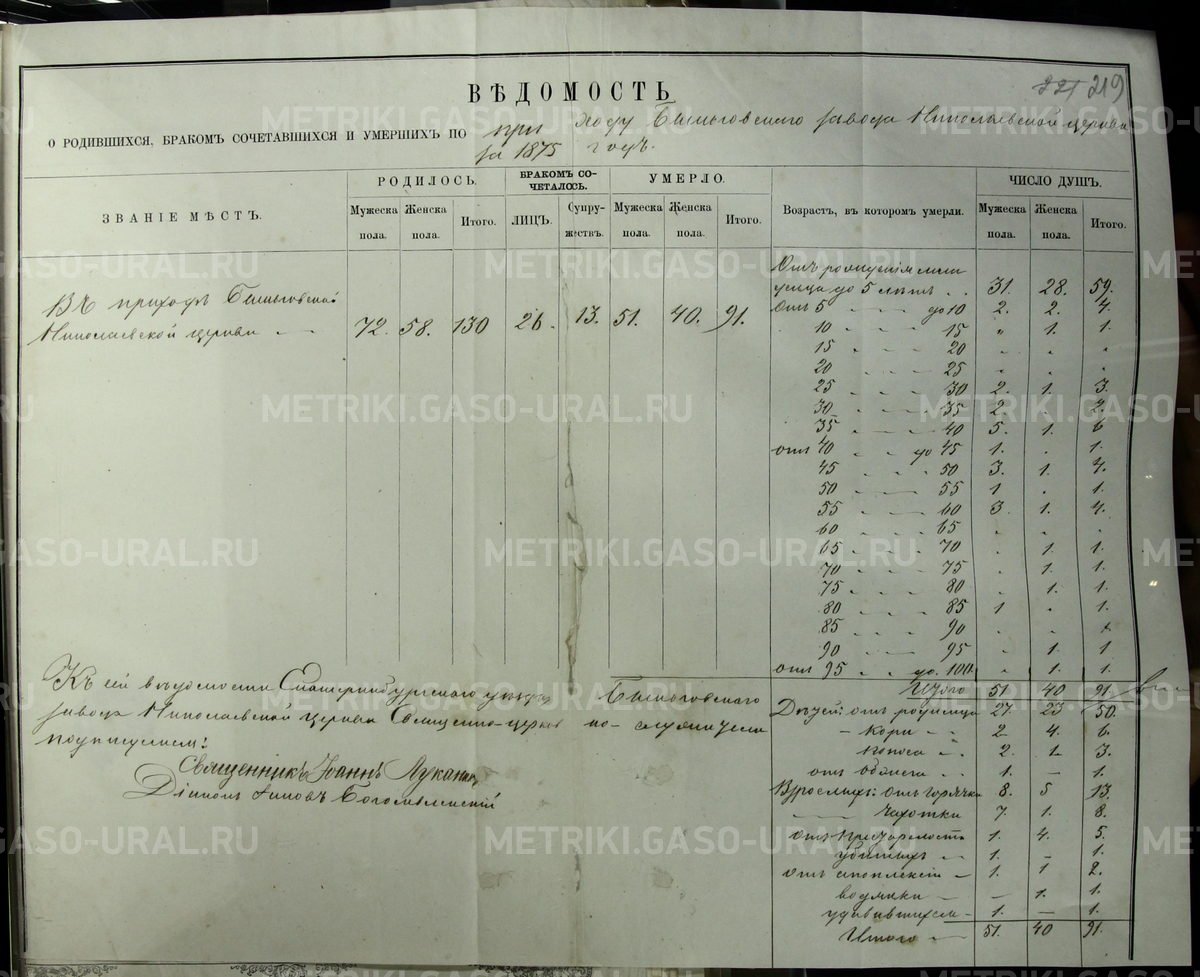 ВѢДОМОСТЬ
219
О РОДИВШИХСЯ, БРАКОМЪ СОЧЕТАВШИХСЯ И УМЕРШИХЪ ПО приходу Бынговскаго завода Николаевской церкви
за 1875 годъ.
ЗВАНІЕ МѢСТЪ. РОДИЛОСЬ. БРАКОМЪ СОЧЕТАЛОСЬ. УМЕРЛО. Возрастъ, въ которомъ умерли. ЧИСЛО ДУШЪ.
Мужеска пола. Женска пола. Итого. ЛИЦЪ. Супружествъ. Мужеска пола. Женска пола. Итого. Мужеска пола. Женска пола. Итого.
Въ приходѣ Бынговской
Николаевской церкви 72. 58. 130 26. 13. 51. 40. 91.
Отъ рожденія
до 5 лѣтъ 31. 28. 59.
Отъ 5 до 10 2. 2. 4.
10 15 " 1. 1.
15 20
20 25
25 30 2. 1. 3.
30 35 2. . 2.
35 40 5. 1. 6
отъ 40 до 45 1. . 1.
45 50 3. 1. 4.
50 55 1 . 1.
55 60 3 1. 4.
60 65
65 70 . 1. 1.
70 75 . 1. 1.
75 80 . 1. 1.
80 85 1 . 1.
85 90
90 95 . 1. 1
отъ 95 до 100 . 1. 1.
Итого 51. 40 91.
Дѣтей: отъ родимца 27 23 50.
Кори 2 4. 6.
Поноса 2. 1. 3.
1. — 1.
Взрослыхъ: отъ горячки 8. 5 13.
Чахотки 7. 1. 8.
отъ престарелости 1. 4. 5.
убитыхъ 1. — 1.
отъ апоплексіи 1. 1 2.
водянки — 1. 1.
удавившихся 1. — 1.
Итого 51. 40 91.
Къ сей вѣдомости Екатеринбургскаго уѣзда Бынговскаго
завода Николаевской церкви Священно-церковно-служители
подписуемся:
Священникъ Іоаннъ Луканинъ
Діаконъ
METRIKI.GASO-URAL.RU